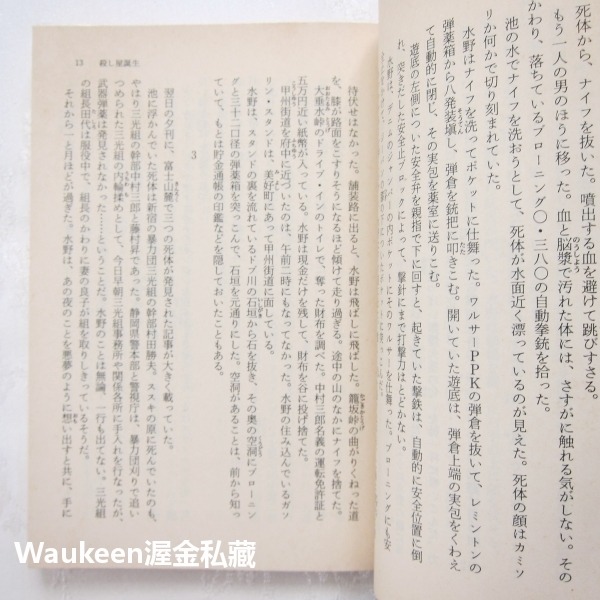 死体から、ナイフを抜いた。噴出する血を避けて跳びすさる。
もう一人の男のほうに移った。血と脳漿で汚れた体には、さすがに触れる気がしない。その
かわり、落ちているブローニング〇・三八〇の自動拳銃を拾った。
池の水でナイフを洗おうとして、死体が水面近く漂っているのが見えた。死体の顔はカミソ
リか何かで切り刻まれていた。
水野はナイフを洗ってポケットに仕舞った。ワルサーPPKの弾倉を抜いて、レミントンの
弾薬箱から八発装塡し、弾倉を銃把に叩きこむ。開いていた遊底は、弾倉上端の実包をくわえ
て自動的に閉じ、その実包を薬室に送りこむ。
遊底の左側についた安全弁を親指で下に回すと、起きていた撃鉄は、自動的に安全位置に倒
れ、突きだした安全止ブロックによって、撃針にまで打撃力はとどかない。
水野は、デニムのジャンパーの内ポケットにそのワルサーを仕舞った。ブローニングにも安
13 殺し屋誕生
待伏せはなかった。舗装路に出ると、水野は飛ばしに飛ばした。籠坂峠の曲がりくねった道
を、膝が路面をこすりそうになるほど傾けて走り過ぎる。途中の山のなかにナイフを捨てた。
大垂水峠のドライブ・インのトイレで、奪った財布を調べた。中村三郎名義の運転免許証と
五万円近い紙幣が入っている。水野は現金だけを残して、財布を谷に投げ捨てた。
甲州街道を府中に近づいたのは、午前二時にもなってなかった。水野の住み込んでいるガソ
リン・スタンドは、美好町にあって甲州街道に面している。
水野は、スタンドの裏を流れているドブ川の石垣から石を抜き、その奥の空洞にブローニン
グと三十二口径の弾薬箱を突っこんで、石垣を元通りにした。空洞があることは、前から知っ
ていて、もとは貯金通帳の印鑑などを隠しておいたこともある。
3
翌日の夕刊に、富士山麓で三つの死体が発見された記事が大きく載っていた。
池に浮かんでいた死体は新宿の暴力団三光組の幹部村田勝夫。ススキの原に死んでいたのも、
やはり三光組の幹部中村三郎と藤村昇であった。静岡県警本部と警視庁は、暴力団刈りで追い
つめられた三光組の内輪揉めとして、今日早朝三光組事務所や関係各所に手入れを行なったが、
武器弾薬は発見されなかった……ということだ。水野のことは無論、一行も出てない。三光組
の組長田代は服役中で、組長のかわりに妻の良子が組を取りしきっているそうだ。
それから一と月ほどが過ぎた。水野は、あの夜のことを悪夢のように想い出すと共に、手に
Waukeen渥金私藏